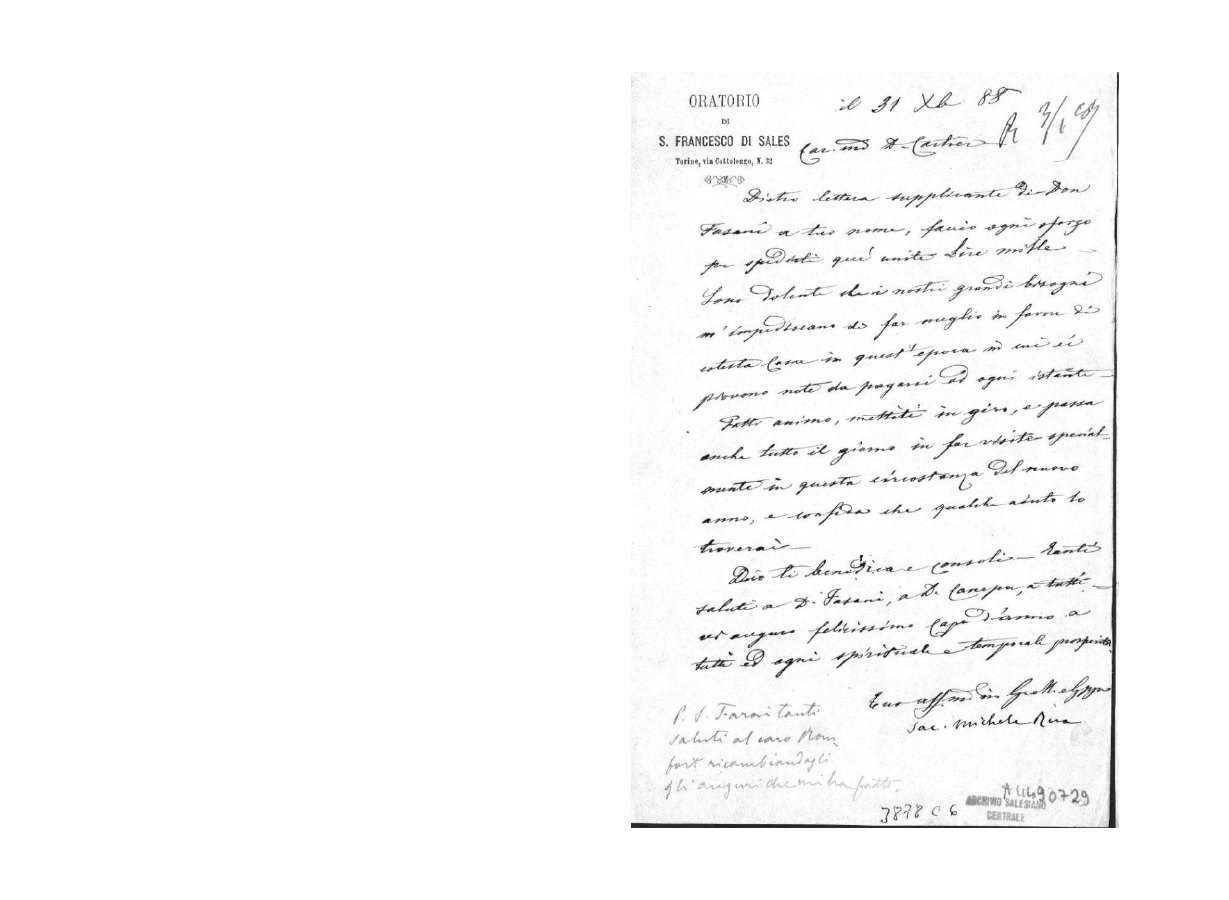 ORATORIO
DI
S. FRANCESCO DI SALES
Torino, via Cottolengo, N. 32
il 31 Xb 88
Car.mo D. Cartier
R 3/1 89
Dietro lettera supplicante di Don
Fasani a tuo nome, faccio ogni sforzo
per spedirti qui unite Lire mille
Sono dolente che i nostri grandi bisogni
m'impediscano di far meglio in favore di
cotesta Casa in quest'epoca in cui ci
piovono note da pagarsi ad ogni istante -
Fatti animo, mettiti in giro, e passa
anche tutto il giorno in far visite special-
mente in questa circostanza del nuovo
anno, e confida che qualche aiuto lo
troverai -
Dio ti benedica e consoli - Tanti
saluti a D. Fasani, a D. Canepa, a tutti -
ed auguro felicissimo capo d'anno a
tutti ed ogni spirituale e temporale prosperità
Tuo aff.mo in G. M. e Gppe
Sac. Michele Rua
P. S. Farai tanti
saluti al caro Rom
fort ricambiandogli
gli auguri che mi ha fatto.
A 4490729
ARCHIVIO SALESIANO
CENTRALE
3878 C 6